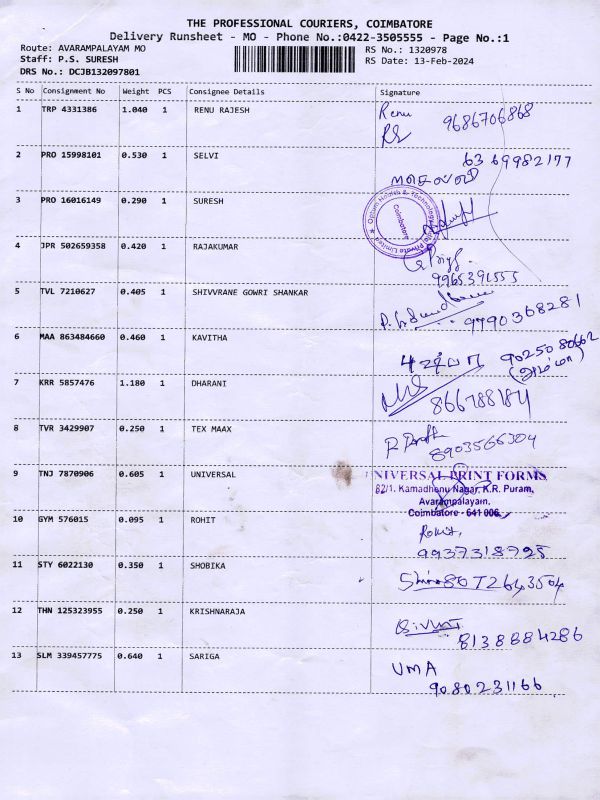 THE PROFESSIONAL COURIERS, COIMBATORE
Delivery Runsheet - MO - Phone No.:0422-3505555 - Page No.:1
Route: AVARAMPALAYAM MO RS No.: 1320978
Staff: P.S. SURESH RS Date: 13-Feb-2024
DRS No.: DCJB132097801
S No Consignment No Weight PCS Consignee Details Signature
1 TRP 4331386 1.040 1 RENU RAJESH Renu
9686706868
2 PRO 15998101 0.530 1 SELVI 6369982177
3 PRO 16016149 0.290 1 SURESH
Coimbatore
4 JPR 502659358 0.420 1 RAJAKUMAR
9965391555
5 TVL 7210627 0.405 1 SHIVVRANE GOWRI SHANKAR
9790368281
6 MAA 863484660 0.460 1 KAVITHA
90250 80662
(அம்மா)
7 KRR 5857476 1.180 1 DHARANI
866788184
8 TVR 3429907 0.250 1 TEX MAAX
8903566304
9 TNJ 7870906 0.605 1 UNIVERSAL NIVERSAL PRINT FORMS
82/1, Kamadhenu Nagar, K.R. Puram,
Avarampalayam,
Coimbatore - 641 006.
10 GYM 576015 0.095 1 ROHIT Rohit,
9937318798
11 STY 6022130 0.350 1 SHOBIKA
12 THN 125323955 0.250 1 KRISHNARAJA
8138884286
13 SLM 339457775 0.640 1 SARIGA UMA
9080231166